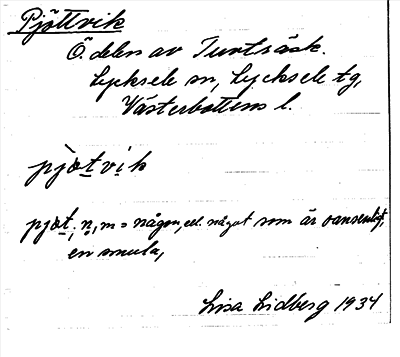 Pjöttvik
Ö. delen av Tuvträsk.
Lycksele sn, Lycksele tg,
Västerbottens l.
pjøtvik
pjøt, n, m = någon, ell. något som är oansenligt,
en smula,
Lisa Lidberg 1934